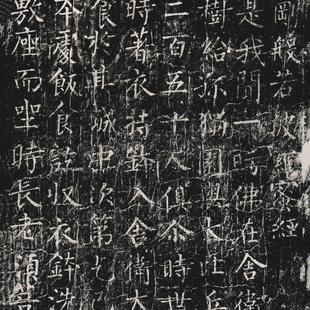 剛般若波羅蜜經
是我聞一時佛在舍衛
樹給孤獨園與大比丘
二百五十人俱尒時世
時著衣持鉢入舍衛大
食於其城中次第乞
本處飯食訖收衣鉢洗
敷座而坐時長老須菩